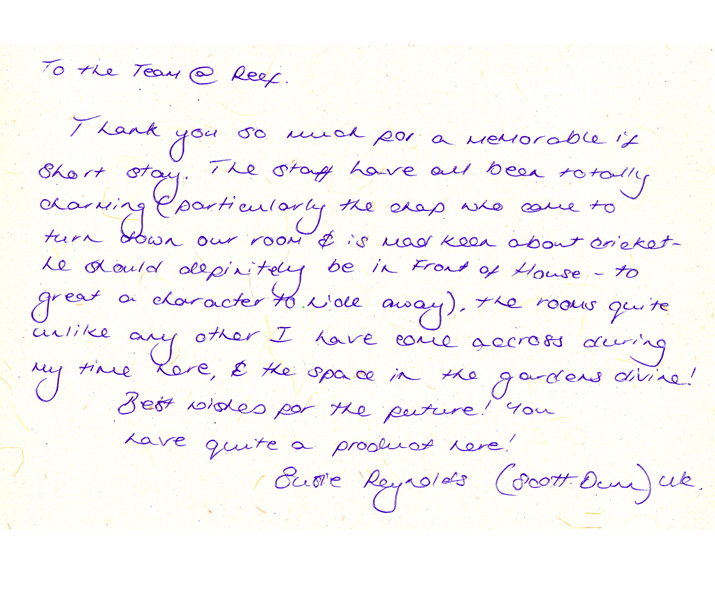 To the Team @ Reef.
Thank you so much for a memorable if
short stay. The staff have all been totally
charming (particularly the chap who came to
turn down our room & is mad keen about cricket -
he should definitely be in Front of House - to
great a character to hide away). The rooms quite
unlike any other I have come accross during
my time here, & the space in the gardens divine!
Best wishes for the future! You
have quite a product here!
Susie Reynolds (Scott Dunn) UK.